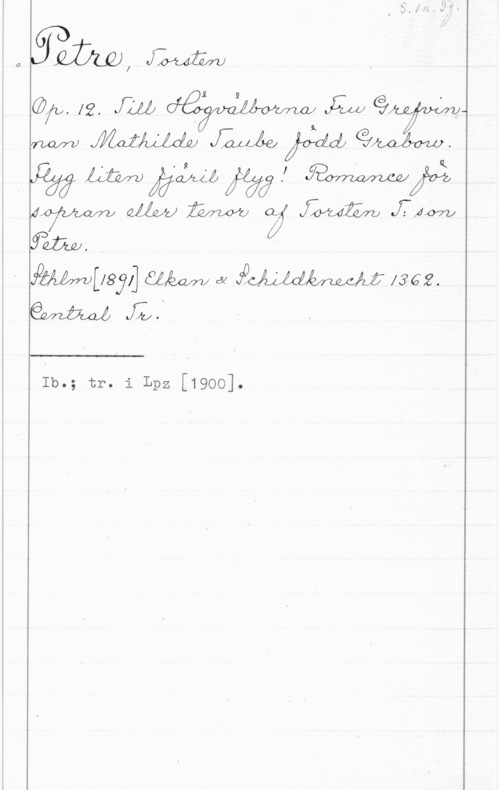 S. 1 n. Sf.
Petre, Torsten
Op. 12. Till Högvälborna Fru Grefvin-
nan Mathilde Taube född Grabow.
Flyg liten fjäril flyg! Romance för
sopran eller tenor af Torsten T:son
Petre.
Sthlm [1891] Elkan & Schildknecht 1362.
Central Tr.
Ib.; tr. i Lpz [1900].